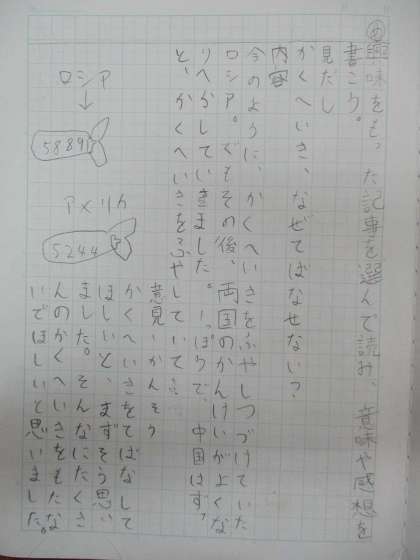 ㋱興味をもった記事を選んで読み、意味や感想を
書こう。
見だし
かくへいき、なぜてばなせない？
内容
今のように、かくへいきをふやしつづけていた
ロシア。でもその後、両国のかんけいがよくな
りへらしていきました。いっぽうで、中国はず
と、かくへいきをふやしていて…
意見・かんそう
かくへいきをてばなして
ほしいと、まずそう思い
ました。そんなにたくさ
んのかくへいきをもたな
いでほしいと思いました。
アメリカ
5244
ロシア
↓
5889